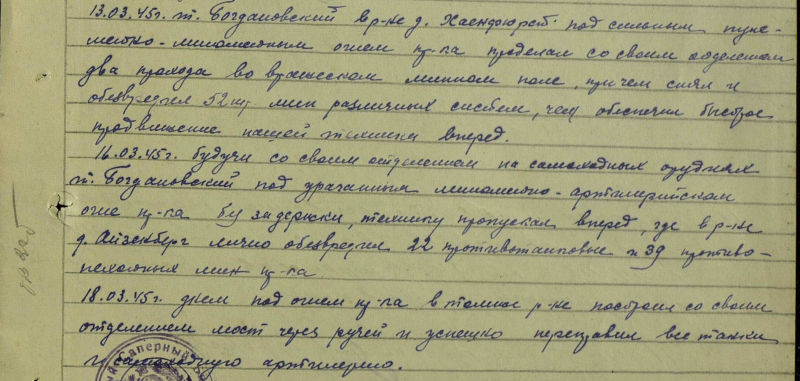 13.03.45г. т. Богдановский в р-не д. Хаендюрсб. под сильным пуле-
метно-минометным огнем пр-ка проделал со своим отделением
два прохода во вражеском минном поле, при чем снял и
обезвредил 52 шт. мин различных систем, чем обеспечил быстрое
продвижение нашей техники вперед.
16.03.45г. будучи со своим отделением на самоходных орудиях
т. Богдановский под ураганным минометно-артиллерийском
огне пр-ка без задержки, технику пропускал вперед, где в р-не
д. Айзенберг лично обезвредил 22 противотанковые и 39 противо-
пехотных мин пр-ка
18.03.45г. днем под огнем пр-ка в том же р-не построил со своим
отделением мост через ручей и успешно переправил все танки
и самоходную артилерию.
Саперный